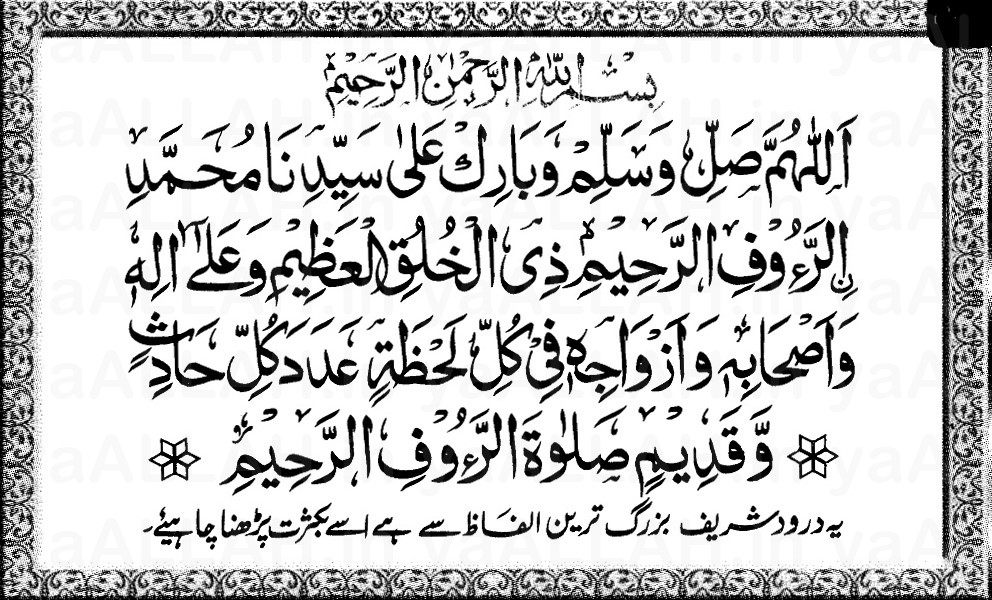 بِسْمِ اللهِ الرَّحْمٰنِ الرَّحِيْمِ
اَللّٰهُمَّ صَلِّ وَسَلِّمْ وَبَارِكْ عَلٰى سَيِّدِنَا مُحَمَّدِ
نِ الرَّءُوْفِ الرَّحِيْمِ ذِى الْخُلُقِ الْعَظِيْمِ وَعَلٰٓى اٰلِهٖ
وَاَصْحَابِهٖ وَاَزْوَاجِهٖ فِيْ كُلِّ لَحْظَةٍ عَدَدَ كُلِّ حَادِثٍ
وَّقَدِيْمٍ صَلٰوةَ الرَّءُوْفِ الرَّحِيْمِ
یہ درود شریف بزرگ ترین الفاظ سے ہے اسے بکثرت پڑھنا چاہیئے۔
yaALLAH.in